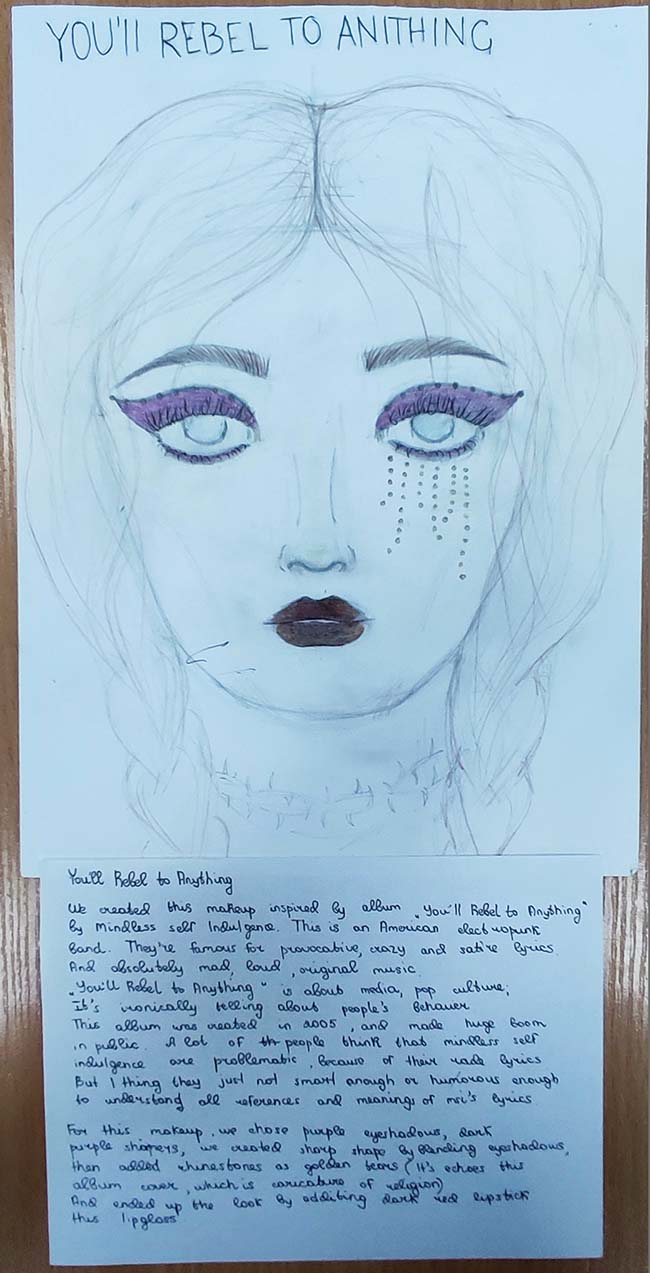 YOU'll REBEL TO ANITHING
You'll Rebel to Anything
We created this makeup inspired by album „You'll Rebel to Anything"
by Mindless self Indulgence. This is an American electropunk
band. They're famous for provocative, crazy and satire lyrics
And absolutely mad, loud, original music.
„You'll Rebel to Anything" is about media, pop culture;
It's ironically telling about people's behauer
This album was created in 2005, and made huge boom
in public. A lot of people think that mindless self
indulgence are problematic, because of their rude lyrics
But I thing they just not smart anough or humorous enough
to understand all references and meanings of msi's lyrics
For this makeup, we chose purple eyeshadows, dark
purple shapers, we created sharp shape by blending eyeshadows,
then added rhinestones as golden tears (It's echoes this
album cover, which is caricature of religion)
And ended up the look by additing dark red lipstick
this lipgloss